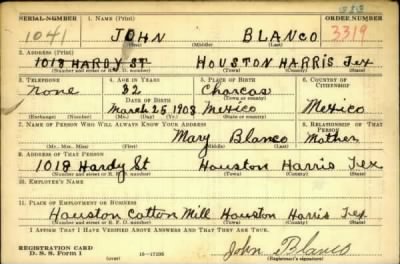 SERIAL NUMBER 1. NAME (Print) ORDER NUMBER
1041 JOHN BLANCO 3319
(First) (Middle) (Last)
2. ADDRESS (Print)
1018 HARDY ST HOUSTON HARRIS Tex
(Number and street or R. F. D. number) (Town) (County) (State)
3. TELEPHONE 4. AGE IN YEARS 5. PLACE OF BIRTH 6. COUNTRY OF CITIZENSHIP
None 32 Charcas
DATE OF BIRTH (Town or county)
March 25, 1908 Mexico Mexico
(Exchange) (Number) (Mo.) (Day) (Yr.) (State or country)
7. NAME OF PERSON WHO WILL ALWAYS KNOW YOUR ADDRESS 8. RELATIONSHIP OF THAT PERSON
Mary Blanco Mother
(Mr., Mrs., Miss) (First) (Middle) (Last)
9. ADDRESS OF THAT PERSON
1018 Hardy St Houston Harris Tex
(Number and street or R. F. D. number) (Town) (County) (State)
10. EMPLOYER'S NAME
11. PLACE OF EMPLOYMENT OR BUSINESS
Houston Cotton Mill Houston Harris Tex
(Number and street or R. F. D. number) (Town) (County) (State)
I AFFIRM THAT I HAVE VERIFIED ABOVE ANSWERS AND THAT THEY ARE TRUE.
REGISTRATION CARD
D. S. S. Form 1 16-17295 John Blanco
(Registrant's signature)